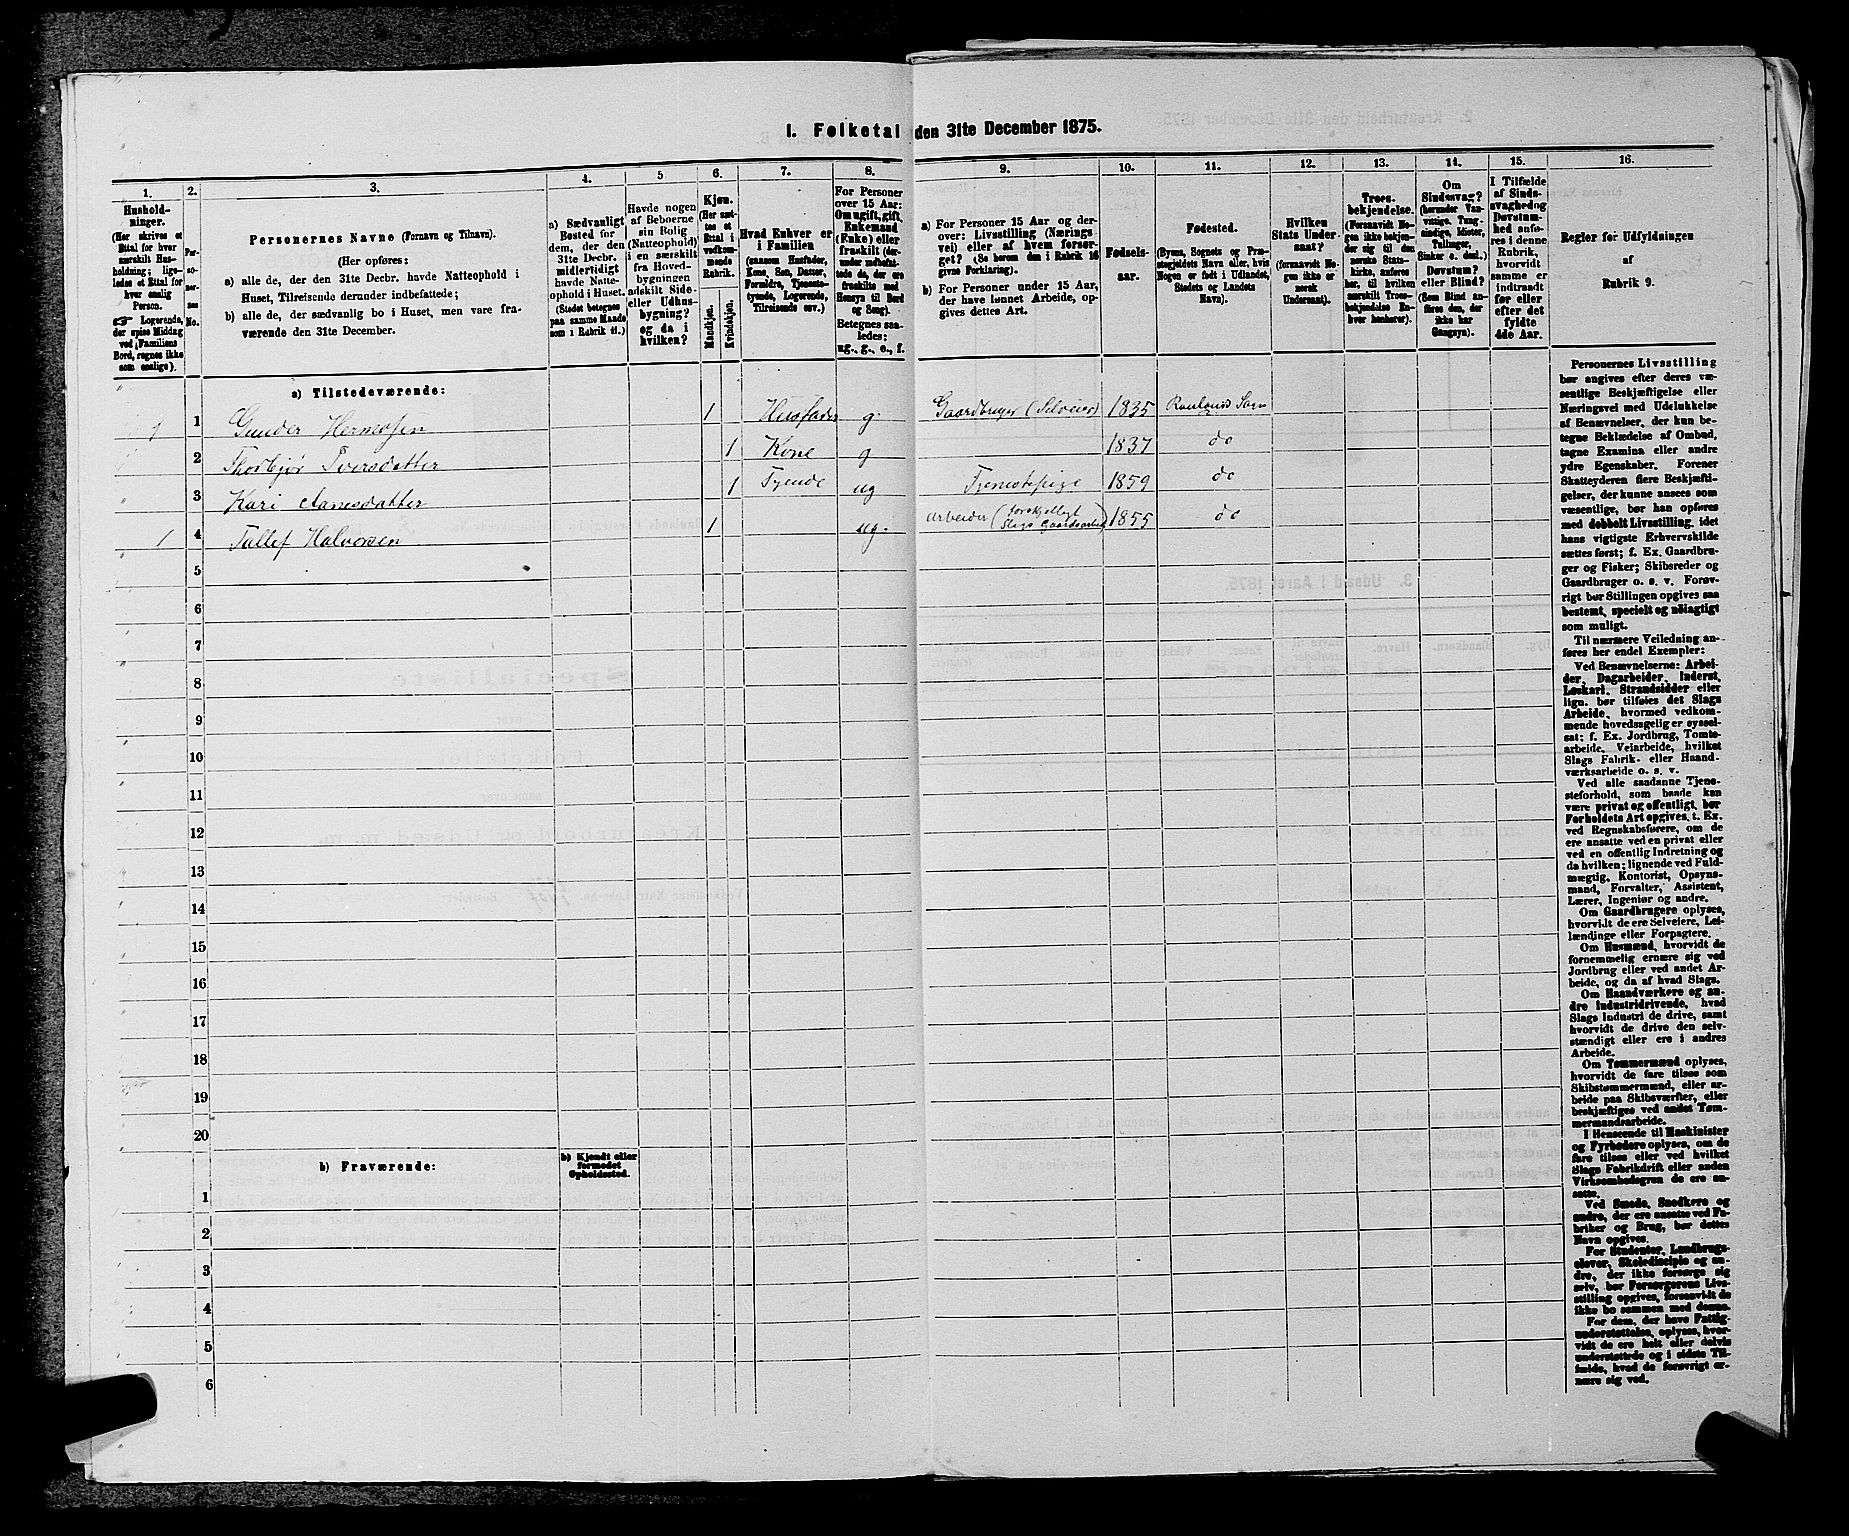 I. Folketal den 31te December 1875.
1. 2. 3. 4. 5 6. 7. 8. 9. 10. 11. 12. 13. 14. 15. 16.
Hushold-
ninger.
(Her skrives et
Ettal for hver
særskilt Hus-
holdning; lige-
ledes et Ettal for
hver enslig
Person.
☞ Logerende,
der spise Middag
ved Familiens
Bord, regnes ikke
som enslige).
Per-
so-
ner-
nes
No.
Personernes Navne (Fornavn og Tilnavn).
(Her opføres:
a) alle de, der den 31te Decbr. havde Natteophold i
Huset, Tilreisende derunder indbefattede;
b) alle de, der sædvanlig bo i Huset, men vare fra-
værende den 31te December.
a) Sædvanligt
Bosted for
dem, der den
31te Decbr.
midlertidigt
havde Natte-
ophold i Huset.
(Stedet betegnes
paa samme Maade
som i Rubrik 11.)
Havde nogen
af Beboerne
sin Bolig
(Natteophold)
i en særskilt
fra Hoved-
bygningen
adskilt Side-
eller Udhus-
bygning?
og da i
hvilken?
Kjøn.
(Her sæt-
tes et
Ettal i
vedkom-
mende
Rubrik.
Mandkjøn.
Kvindekjøn.
Hvad Enhver er
i Familien
(saasom Husfader,
Kone, Søn, Datter,
Forældre, Tjeneste-
tyende, Logerende,
Tilreisende osv.)
For Personer
over 15 Aar:
Om ugift, gift,
Enkemand
(Enke) eller
fraskilt (der-
under indbefat-
tede de, der ere
fraskilte med
Hensyn til Bord
og Seng).
Betegnes saa-
ledes:
ug., g., e., f.
a) For Personer 15 Aar og der-
over: Livsstilling (Nærings-
vei) eller af hvem forsør-
get? (Se herom den i Rubrik 16
givne Forklaring).
b) For Personer under 15 Aar,
der have lønnet Arbeide, op-
gives dettes Art.
Fødsels-
aar.
Fødested.
(Byens, Sognets og Præ-
stegjeldets Navn eller, hvis
Nogen er født i Udlandet,
Stedets og Landets
Navn).
Hvilken
Stats Under-
saat?
(forsaavidt No-
gen ikke er
norsk
Undersaat).
Troes-
bekjendelse.
(Forsaavidt No-
gen ikke bekjen-
der sig til den
norske Stats-
kirke, anføres
her, til hvilken
særskilt Troes-
bekjendelse En-
hver henhører).
Om
Sindssvag?
(herunder Van-
vittige, Tung-
sindige, Idioter,
Tullinger,
Sinker o. desl.)
Døvstum?
eller Blind?
(Som Blind an-
føres den, der
ikke har
Gangsyn).
I Tilfælde
af Sinds-
svaghed og
Døvstum-
hed anfø-
res i denne
Rubrik,
hvorvidt
samme er
indtraadt
før eller
efter det
fyldte
4de Aar.
Regler for Udfyldningen
af
Rubrik 9.
a) Tilstedeværende:
1 1 Gunder Hermodsen 1 Husfader g. Gaardbruger (Selveier) 1835 Raulands Sogn
2 Thorbjør Tversdatter 1 Kone g 1837 do
3 Kari Aanesdatter 1 Tyende ug Tjenestepige 1859 do
1 4 Tallef Halvorsen 1 ug. Arbeider (forskjelligt Slags Gaardsarbeid) 1855 do
5
6
7
8
9
10
11
12
13
14
15
16
17
18
19
20
b) Fraværende:
b) Kjendt eller
formodet
Opholdssted.
1
2
3
4
5
6
Personernes Livsstilling
bør angives efter deres væ-
sentlige Beskjæftigelse eller
Næringsvei med Udelukkelse
af Benævnelser, der kun be-
tegne Beklædelse af Ombud,
tagne Examina eller andre
ydre Egenskaber. Forener
Skatteyderen flere Beskjæfti-
gelser, der kunne ansees som
væsentlige, bør han opføres
med dobbelt Livsstilling, idet
hans vigtigste Erhvervskilde
sættes først; f. Ex. Gaardbru-
ger og Fisker; Skibsreder og
Gaardbruger o. s. v. Forøv-
rigt bør Stillingen opgives saa
bestemt, specielt og nøiagtigt
som muligt.
Til nærmere Veiledning an-
føres her endel Exempler:
Ved Benævnelserne: Arbei-
der, Dagarbeider, Inderst,
Løskarl, Strandsidder eller
lign. bør tilføies det Slags
Arbeide, hvormed vedkom-
mende hovedsagelig er syssel-
sat; f. Ex. Jordbrug, Tomte-
arbeide, Veiarbeide, hvilket
Slags Fabrik- eller Haand-
værksarbeide o. s. v.
Ved alle saadanne Tjene-
steforhold, som baade kan
være privat og offentligt, bør
Forholdets Art opgives, t. Ex.
ved Regnskabsførere, om de
ere ansatte ved en privat eller
ved en offentlig Indretning og
da hvilken; lignende ved Fuld-
mægtig, Kontorist, Opsyns-
mand, Forvalter, Assistent,
Lærer, Ingeniør og andre.
Om Gaardbrugere oplyses,
hvorvidt de ere Selveiere, Lei-
lændinge eller Forpagtere.
Om Husmænd, hvorvidt de
fornemmelig ernære sig ved
Jordbrug eller ved andet Ar-
beide, og da af hvad Slags.
Om Haandværkere og an-
dre Industridrivende, hvad
Slags Industri de drive, samt
hvorvidt de drive den selv-
stændigt eller ere i andres
Arbeide.
Om Tømmermænd oplyses,
hvorvidt de fare tilsøs som
Skibstømmermænd, eller ar-
beide paa Skibsværfter, eller
beskjæftiges ved andet Tøm-
mermandsarbeide.
I Henseende til Maskinister
og Fyrbødere oplyses, om de
fare tilsøs eller ved hvilket
Slags Fabrikdrift eller anden
Virksomhedsgren de ere an-
satte.
Ved Smede, Snedkere og
andre, der ere ansatte ved Fa-
briker og Brug, bør dettes
Navn opgives.
For Studenter, Landbrugs-
elever, Skoledisciple og an-
dre, der ikke forsørge sig
selv, bør Forsørgerens Livs-
stilling opgives, forsaavidt de
ikke bo sammen med denne.
For dem, der have Fattig-
understøttelse, oplyses, hvor-
vidt de ere helt eller delvis
understøttede og i sidste Til-
fælde, hvad de forøvrigt er-
nære sig ved.